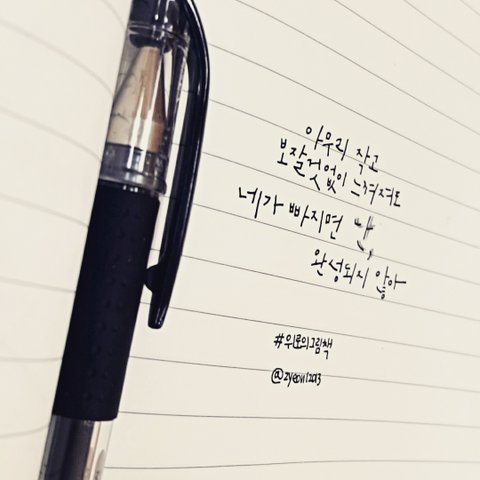 아무리 작고
보잘것없이 느껴져도
네가 빠지면
완성되지 않아
#위로의그림책